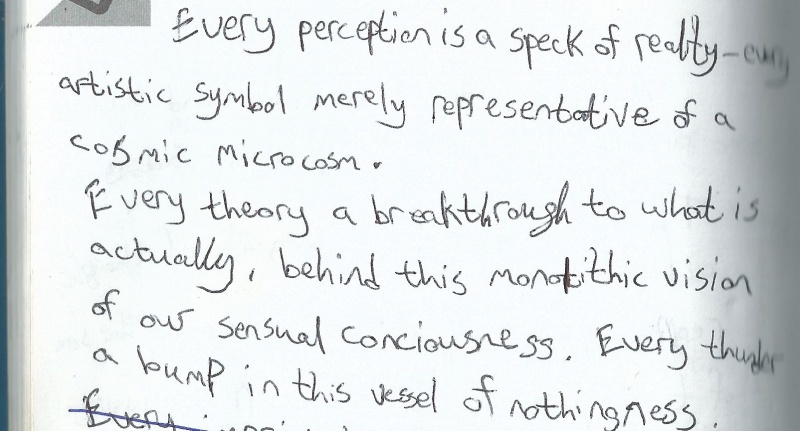 Every perception is a speck of reality – every
artistic symbol merely representative of a
cosmic microcosm.
Every theory a breakthrough to what is
actually, behind this monolithic vision
of our sensual conciousness. Every thunder
a bump in this vessel of nothingness.
Every